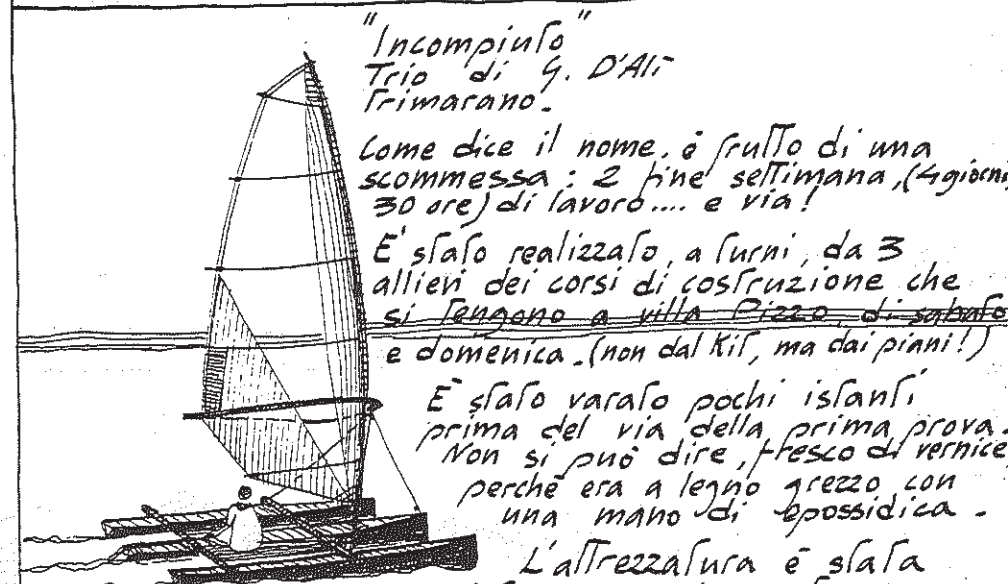 "Incompiuto"
Trio di G. D'Alì
Trimarano.
Come dice il nome, è frutto di una
scommessa: 2 fine settimana, (4 giorni
30 ore) di lavoro.... e via!
E' stato realizzato, a turni, da 3
allievi dei corsi di costruzione che
si tengono a villa Pizzo, di sabato
e domenica. (non dal Kit, ma dai piani!)
E' stato varato pochi istanti
prima del via della prima prova.
Non si può dire, fresco di vernice
perchè era a legno grezzo con
una mano di epossidica.
L'attrezzatura è stata